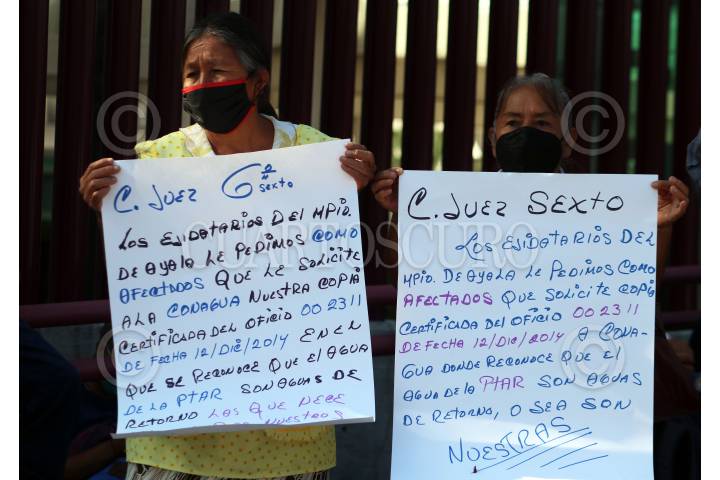 C. JUEZ 6º sexto
LOS EJIDATARIOS DEL MPIO.
DE AYALA LE PEDIMOS COMO
AFECTADOS QUE LE SOLICITE
A LA CONAGUA NUESTRA COPIA
CERTIFICADA DEL OFICIO 00 2311
DE FECHA 12/DIC/2014 EN EL
QUE SE RECONOCE QUE EL AGUA
DE LA PTAR SON AGUAS DE
RETORNO LAS QUE DEBE
NUESTROS
C. JUEZ SEXTO
LOS EJIDATARIOS DEL
MPIO. DE AYALA LE PEDIMOS COMO
AFECTADOS QUE SOLICITE COPIA
CERTIFICADA DEL OFICIO 00 2311
DE FECHA 12/DIC/2014 A CONA-
GUA DONDE RECONOCE QUE EL
AGUA DE LA PTAR SON AGUAS
DE RETORNO, O SEA SON
NUESTRAS
CUARTOSCURO